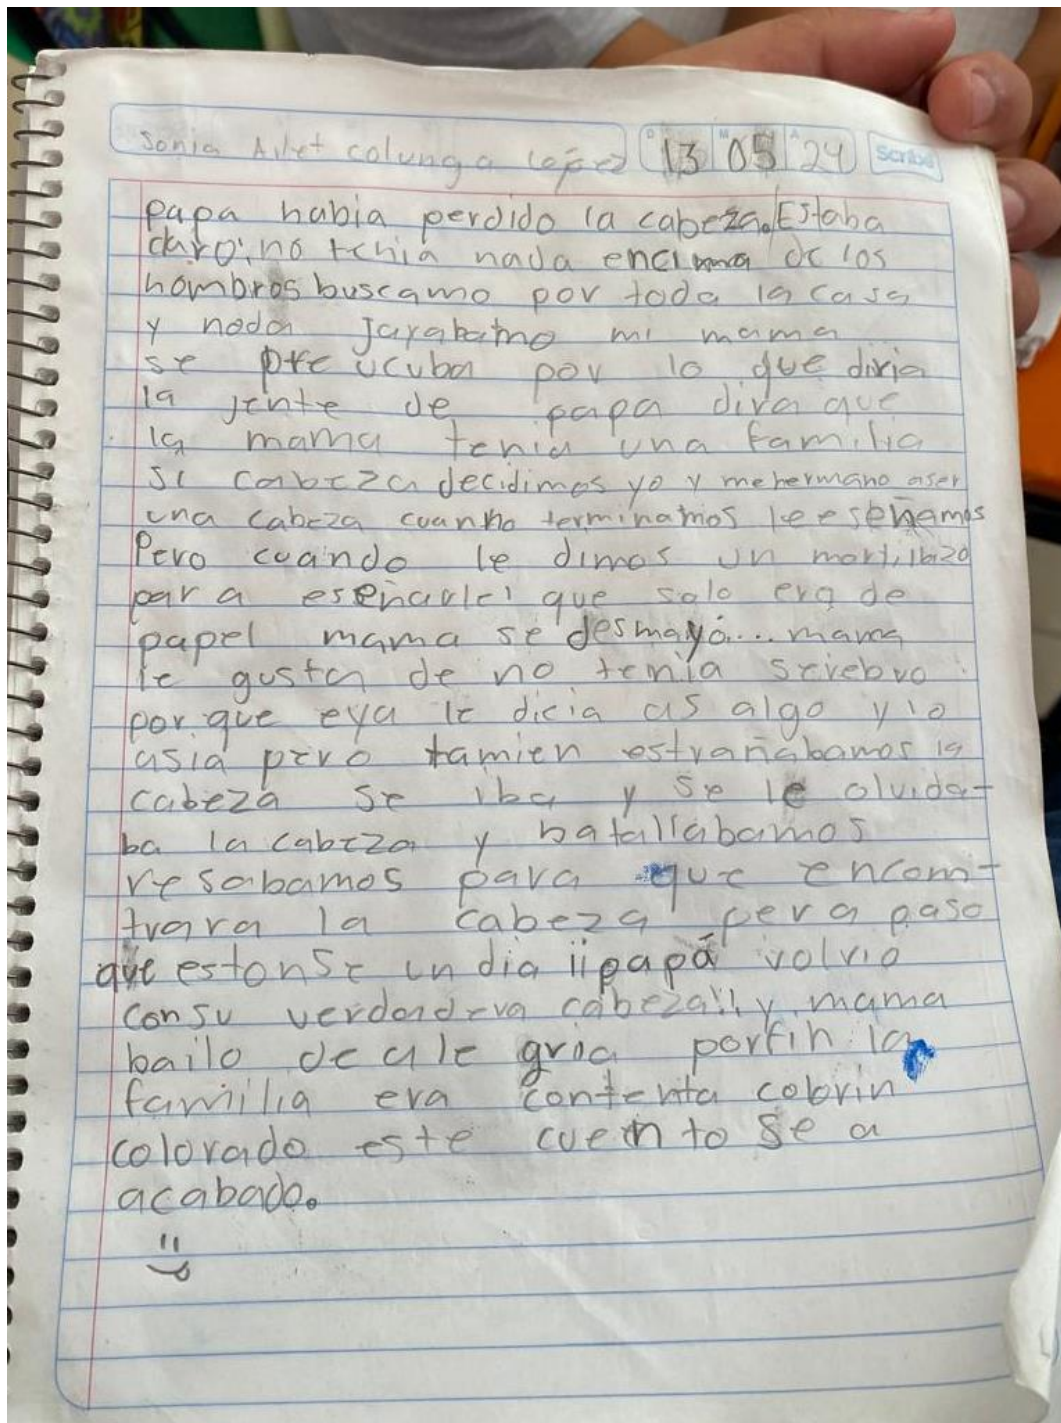 Sonia Ailet colunga López D 13 M 05 A 24 Scribe
papa habia perdido la cabeza. Estaba
claro: no tenia nada encima de los
hombros buscamo por toda la casa
y nada
mi mama
se por lo que diria
la jente de papa dira que
la mama tenia una familia
si cabeza decidimos yo y mehermano aser
una cabeza cuanno terminamos le eseñamos
Pero cuando le dimos un
para que solo era de
papel mama se desmayó... mama
le gusta de no tenia serebro
por que eya le dicia as algo y lo
asia pero tamien estrañabamos la
cabeza se iba y se le olvida-
ba la cabeza y batallabamos
resabamos para que encom-
trara la cabeza pero paso
que estonse un dia ¡¡papá volvio
con su verdadera cabeza!! y mama
bailo de ale gria porfin la
familia era contenta colorin
colorado este cuento se a
acabado.